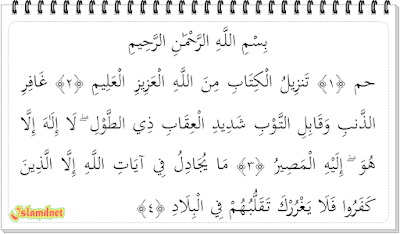 بِسْمِ اللَّهِ الرَّحْمَٰنِ الرَّحِيمِ
حم ﴿١﴾ تَنزِيلُ الْكِتَابِ مِنَ اللَّهِ الْعَزِيزِ الْعَلِيمِ ﴿٢﴾ غَافِرِ
الذَّنبِ وَقَابِلِ التَّوْبِ شَدِيدِ الْعِقَابِ ذِي الطَّوْلِ ۖ لَا إِلَٰهَ إِلَّا
هُوَ ۖ إِلَيْهِ الْمَصِيرُ ﴿٣﴾ مَا يُجَادِلُ فِي آيَاتِ اللَّهِ إِلَّا الَّذِينَ
كَفَرُوا فَلَا يَغْرُرْكَ تَقَلُّبُهُمْ فِي الْبِلَادِ ﴿٤﴾
Islamdnet